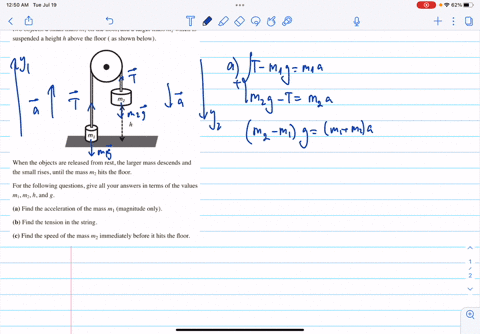 12:50 AM Tue Jul 19
62%
suspended a height h above the floor ( as shown below).
y₁
a
T
T
m₂
m₂g
h
a
m₁
m₁g
y₂
a) T - m₁g = m₁a
+
m₂g - T = m₂a
(m₂ - m₁) g = (m₁ + m₂) a
When the objects are released from rest, the larger mass descends and
the small rises, until the mass m₂ hits the floor.
For the following questions, give all your answers in terms of the values
m₁, m₂, h, and g.
(a) Find the acceleration of the mass m₁ (magnitude only).
(b) Find the tension in the string.
(c) Find the speed of the mass m₂ immediately before it hits the floor.
1
2